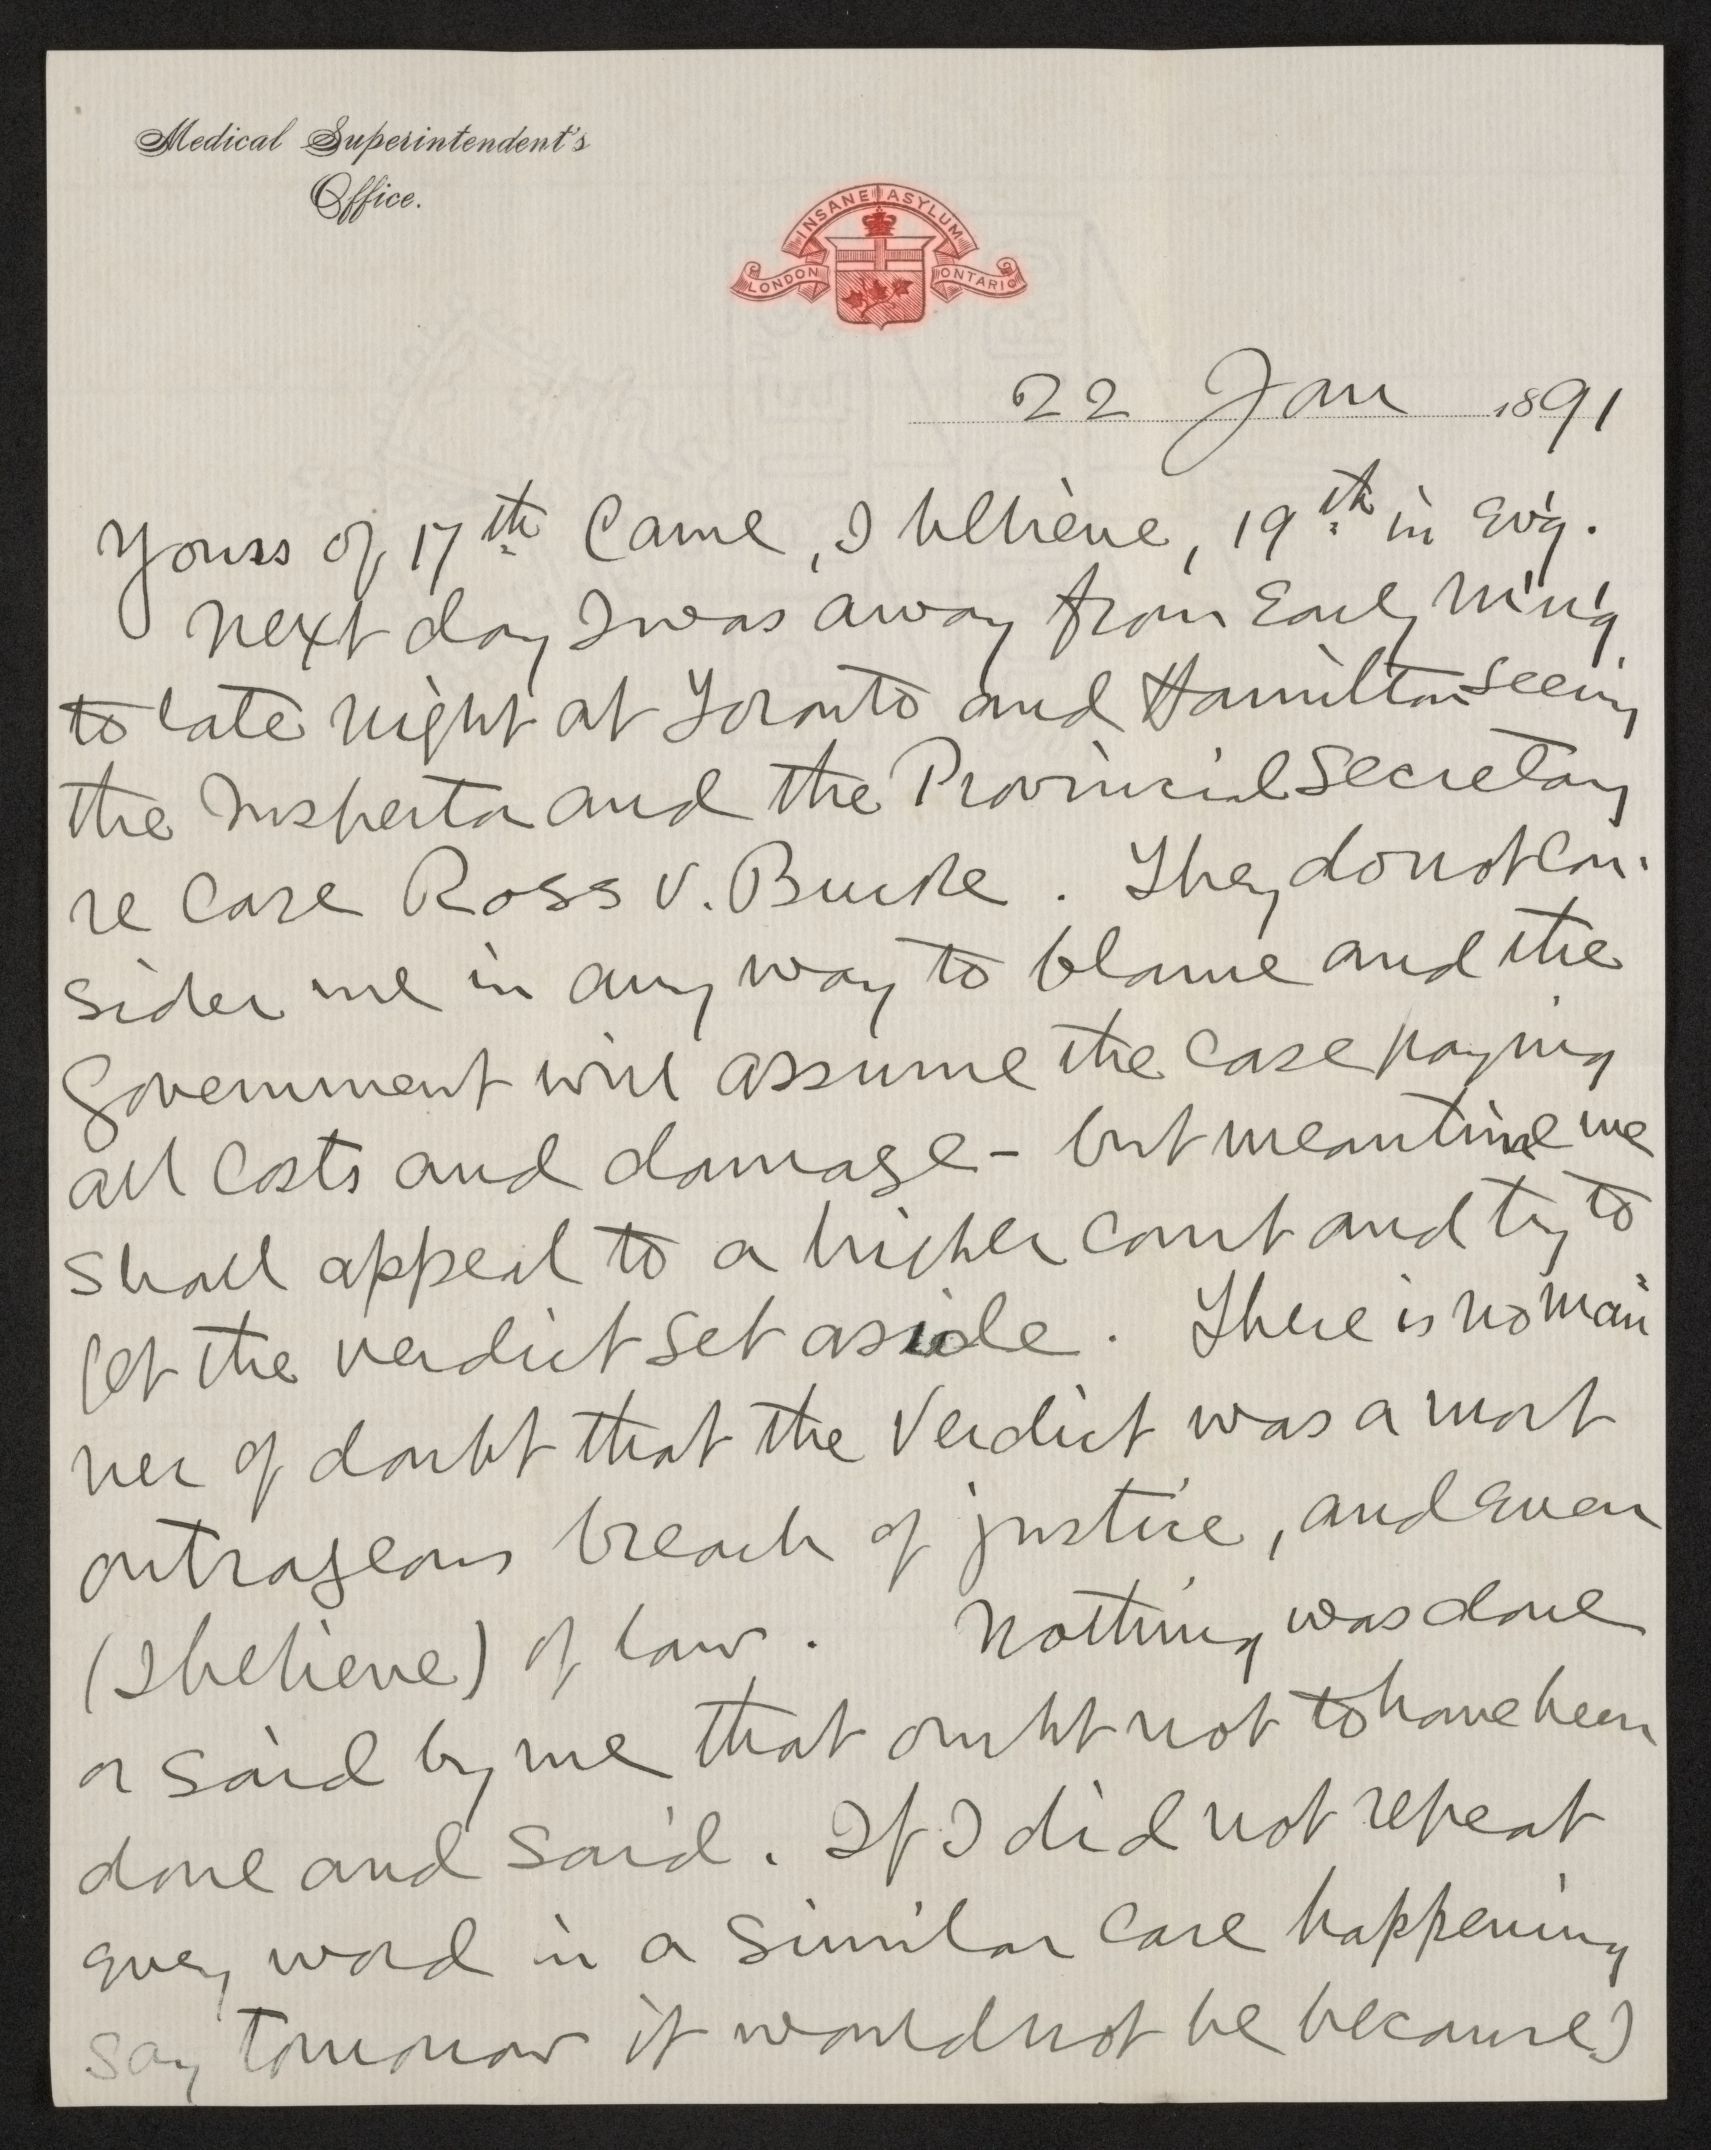 Medical Superintendent's
Office.
INSANE ASYLUM
LONDON ONTARIO
22 Jan 1891
Yours of 17th came, I believe, 19th in Ev'g.
Next day I was away from Early M'n'g
to late night at Toronto and Hamilton seeing
the Inspector and the Provincial Secretary
re case Ross v. Bucke. They do not con-
sider me in any way to blame and the
Government will assume the case paying
all costs and damage - but meantime we
shall appeal to a higher court and try to
get the verdict set aside. There is no man
ner of doubt that the verdict was a most
outrageous breach of justice, and even
(I believe) of law. Nothing was done
or said by me that ought not to have been
done and said. If I did not repeat
every word in a similar case happening
say tomorrow it would not be because I